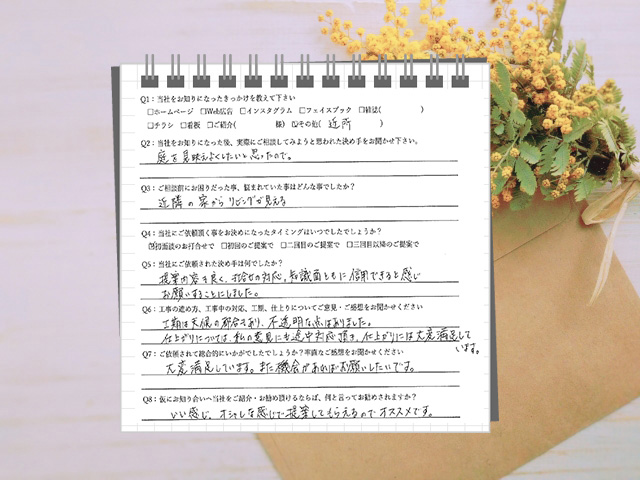 Q1：当社をお知りになったきっかけを教えて下さい
□ホームページ □Web広告 □インスタグラム □フェイスブック □雑誌( )
□チラシ □看板 □ご紹介( 様) ☑その他( 近所 )
Q2：当社をお知りになった後、実際にご相談してみようと思われた決め手をお聞かせ下さい。
庭を見映えよくしたいと思ったので。
Q3：ご相談前にお困りだった事、悩まれていた事はどんな事でしたか？
近隣の家からリビングが見える
Q4：当社にご依頼頂く事をお決めになったタイミングはいつでしたでしょうか？
☑初面談のお打合せで □初回のご提案で □二回目のご提案で □三回目以降のご提案で
Q5：当社にご依頼された決め手は何でしたか？
提案内容も良く、打合せの対応、知識面ともに信用できると感じ
お願いすることにしました。
Q6：工事の進め方、工事中の対応、工期、仕上りについてご意見・ご感想をお聞かせください
工期は天候の都合もあり、不透明な点はありました。
仕上がりについては、私の意見にも途中対応頂き、仕上がりには大変満足して
います。
Q7：ご依頼されて総合的にいかがでしたでしょうか？率直なご感想をお聞かせください
大変満足しています。また機会があればお願いしたいです。
Q8：仮にお知り合いへ当社をご紹介・お勧め頂けるならば、何と言ってお勧めされますか？
いい感じ、オシャレな感じで提案してもらえるのでオススメです。